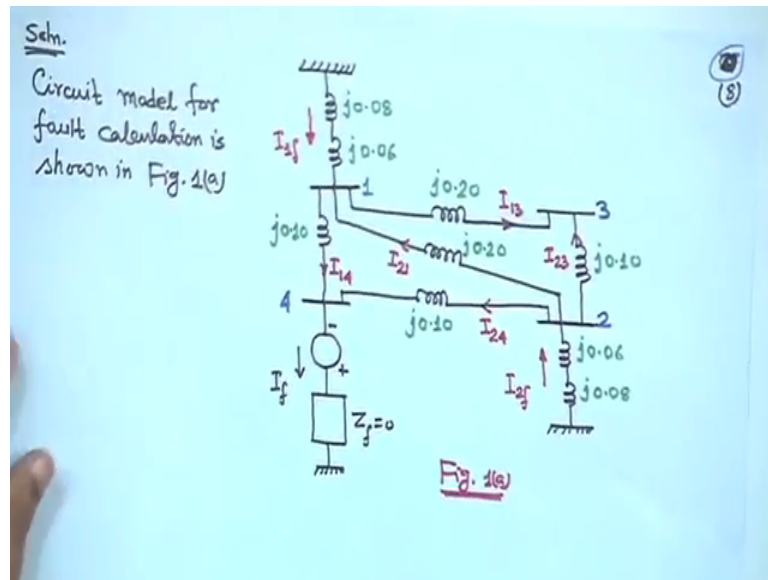 Soln.
(8)
Circuit model for
fault calculation is
shown in Fig. 1(a)
j0.08
I1f
j0.06
1
j0.20
I13
3
j0.10
I21
j0.20
I23
j0.10
I14
4
j0.10
I24
2
-
If
+
I2f
j0.06
j0.08
Zf=0
Fig. 1(a)